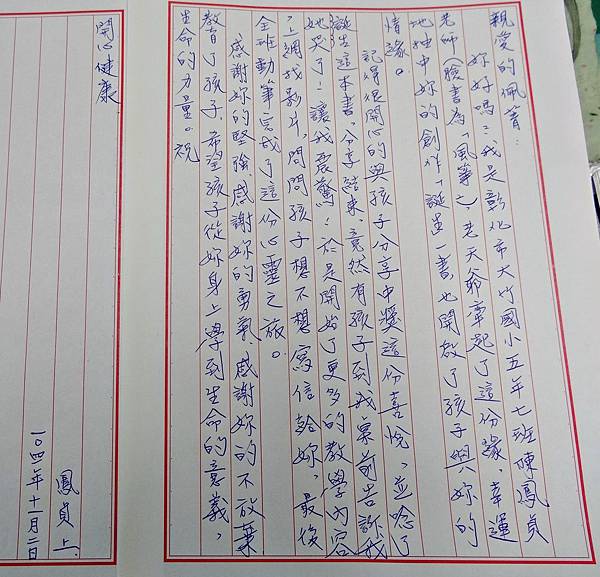 親愛的佩菁：
妳好嗎？我是彰化市大竹國小五年七班陳鳳貞
老師（臉書為「風箏」），老天爺牽起了這份緣，幸運
地抽中妳的創作「誕生」一書也開啟了孩子與妳的
情緣。
記得很開心的與孩子分享中獎這份喜悅，並唸了
誕生這本書，分享結束，竟然有孩子到我桌前告訴我
她哭了！讓我震驚！於是開始了更多的教學內容
，上網找影片，問問孩子想不想寫信給妳，最後
全班動筆完成了這份心靈之旅。
感謝妳的堅強，感謝妳的勇氣，感謝妳的不放棄
教育了孩子，希望孩子從妳身上學到生命的意義，
生命的力量。祝
開心健康
鳳貞上
一○四年十一月二日